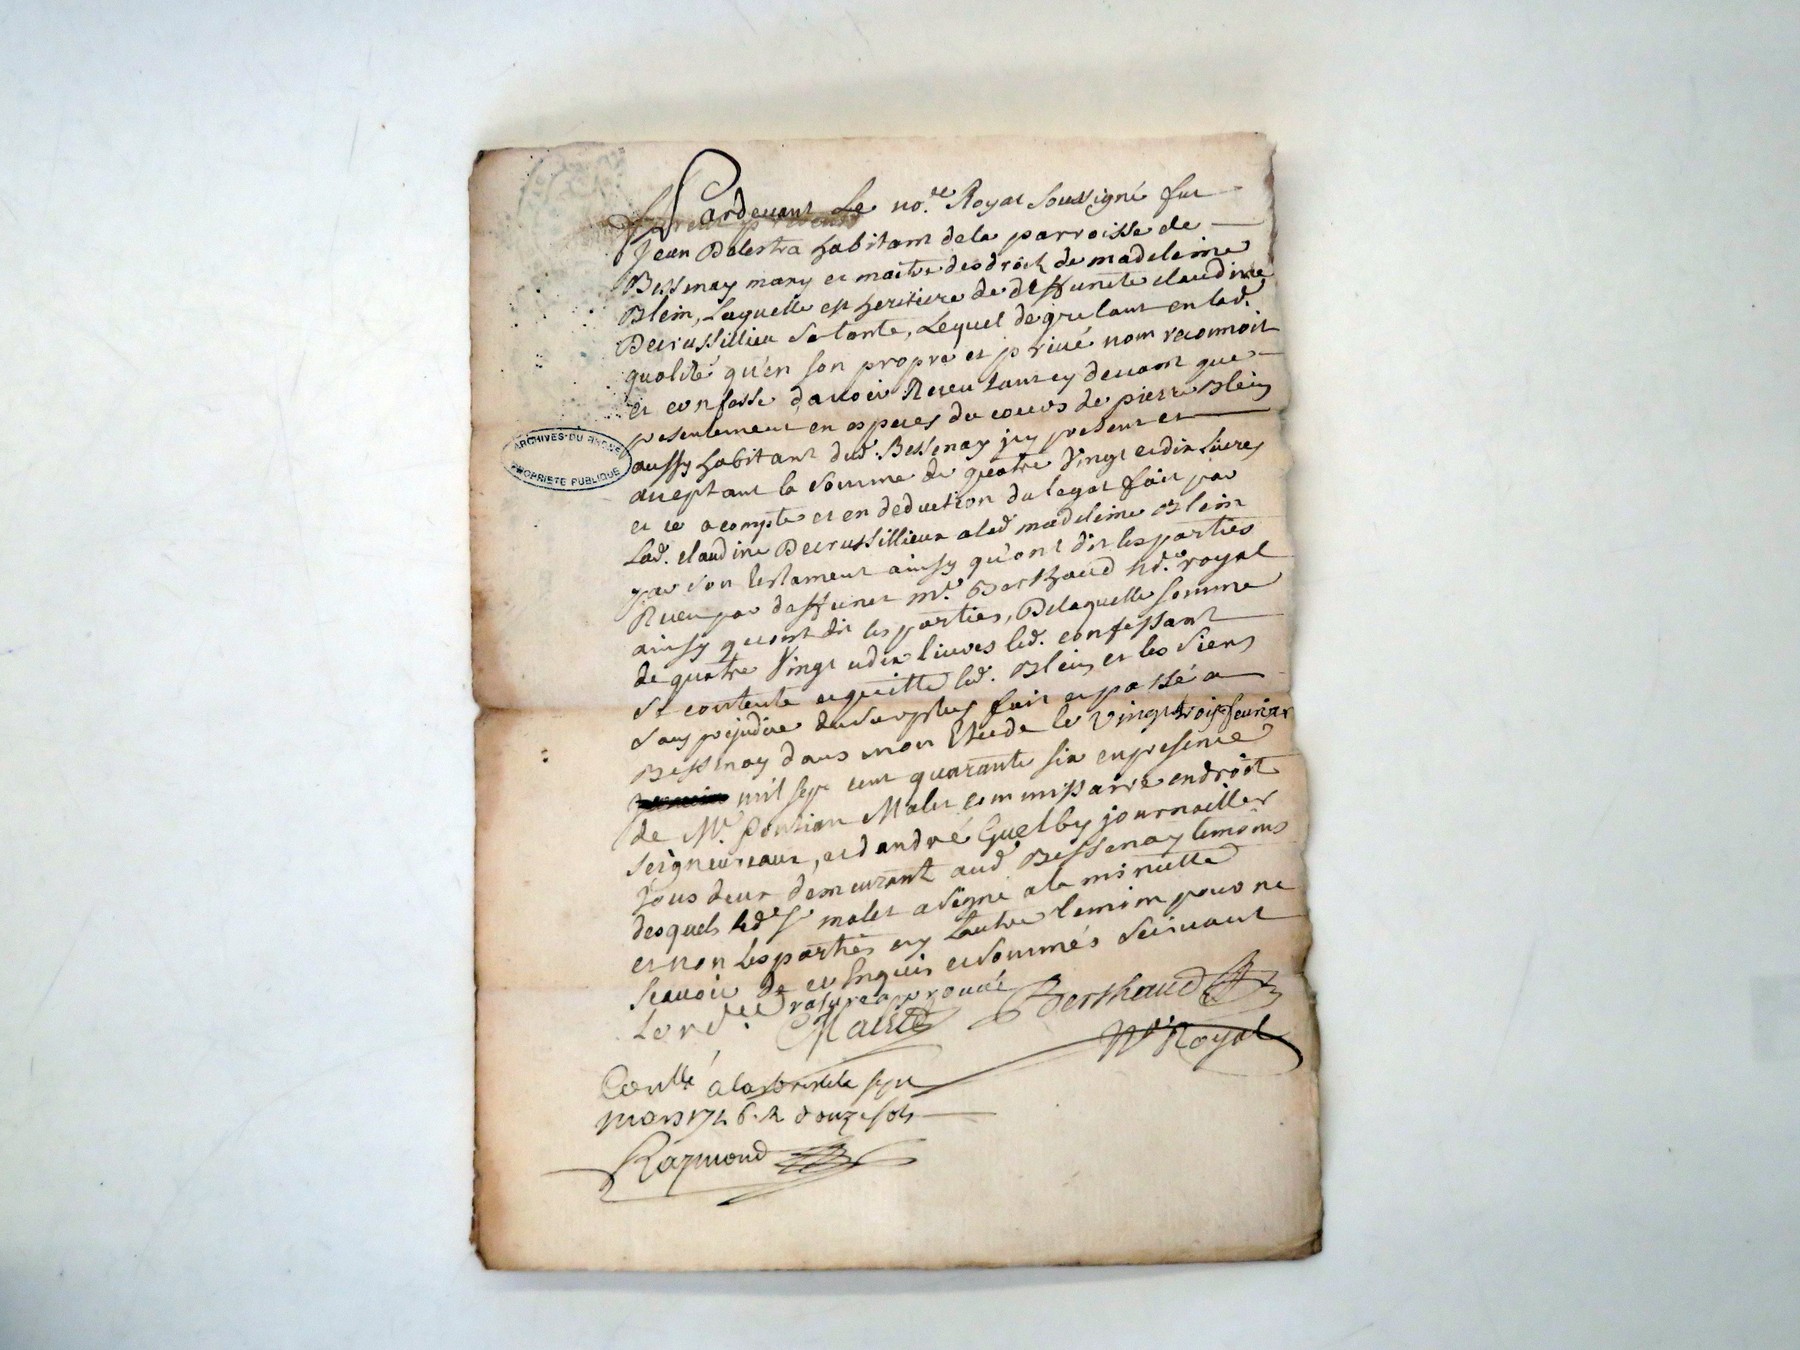 Pardevant Le no.re Royal soussigné fut
present
Jean Balestra habitant dela parroisse de
Bessenay mary et maitre des droits de madeleine
Blein, Laquelle est heritiere de deffunte claudine
Decrussillieu sa tante, Lequel de gré tant en lad.
qualité qu'en son propre et privé nom reconnoit
et confesse davoir Receu tant cy devant que
presentement en especes du cours de pierre Blein
aussy habitant dud. Bessenay icy present et
acceptant la somme de quatre vingt et dix livres
et ce acompte et en deduction du legat fait par
Lad. claudine Decrussillieux a lad. madeleine Blein
par son testament ainsy qu'ont dit les parties
Receu par deffunct m.e Berthaud no.re royal
ainsy qu'ont dit les parties, De laquelle somme
de quatre vingt et dix livres led. confessant
se contente et quitte led. Blein et les siens
sans prejudice du surplus fait et passé a
Bessenay dans mon Etude le vingt trois fevrier
mil sept cent quarante six en presence
de M.e Ponsian Malet commissaire en droit
seigneuriaux, et d'andré Guelby journallier
tous deux demeurants aud. Bessenay temoins
desquels led. s.r malet a signé a la minutte
et non les parties ny l'autre temoin pour ne
scavoir de ce Enquis et sommés suivant
Lord.ce rature approuvée
Malet Berthaud
N.re Royal
Conllé a la Bresle le sept
mars 1746. R douze sols
Raymond
ARCHIVES DU RHONE
PROPRIETE PUBLIQUE